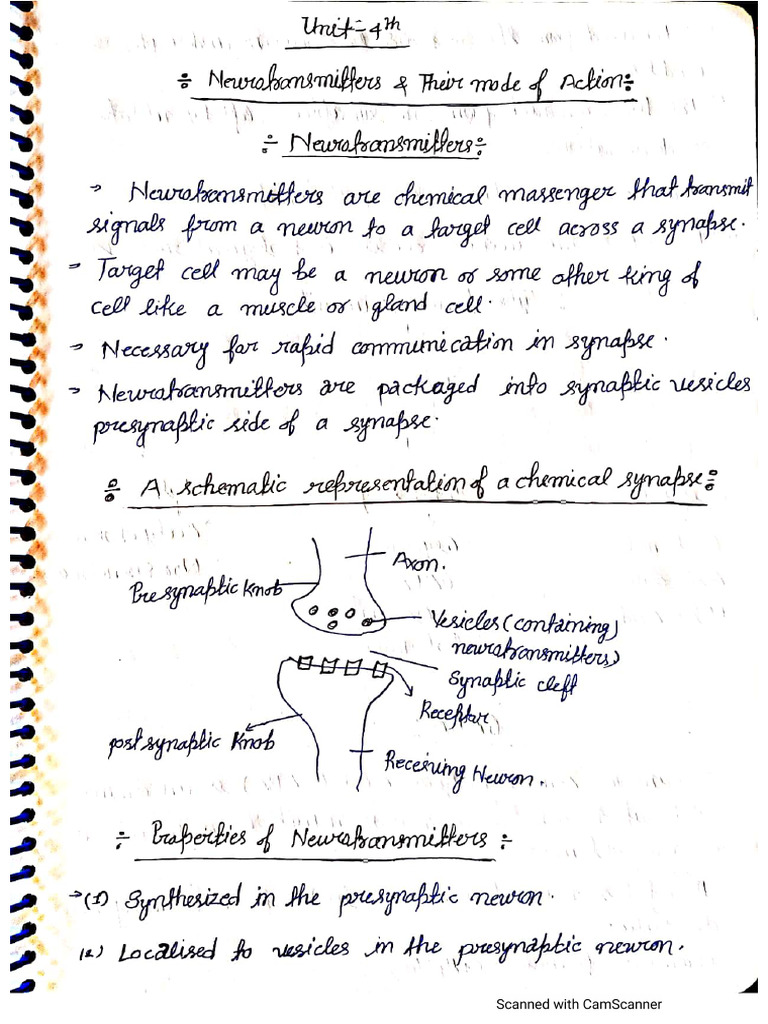 Unit-4th
÷ Neurotransmitters & Their mode of Action÷
÷ Neurotransmitters÷
→ Neurotransmitters are chemical massenger that transmit
signals from a neuron to a target cell across a synapse.
→ Target cell may be a neuron or some other king of
cell like a muscle or gland cell.
→ Necessary for rapid communication in synapse.
→ Neurotransmitters are packaged into synaptic vesicles
presynaptic side of a synapse.
÷ A schematic representation of a chemical synapse÷
Axon.
Presynaptic Knob
Vesicles (containing)
neurotransmitters)
Synaptic cleft
Receptor
postsynaptic Knob
Receiving Neuron.
÷ Properties of Neurotransmitters ÷
→(1) Synthesized in the presynaptic neuron.
(2) Localised to vesicles in the presynaptic neuron.
Scanned with CamScanner